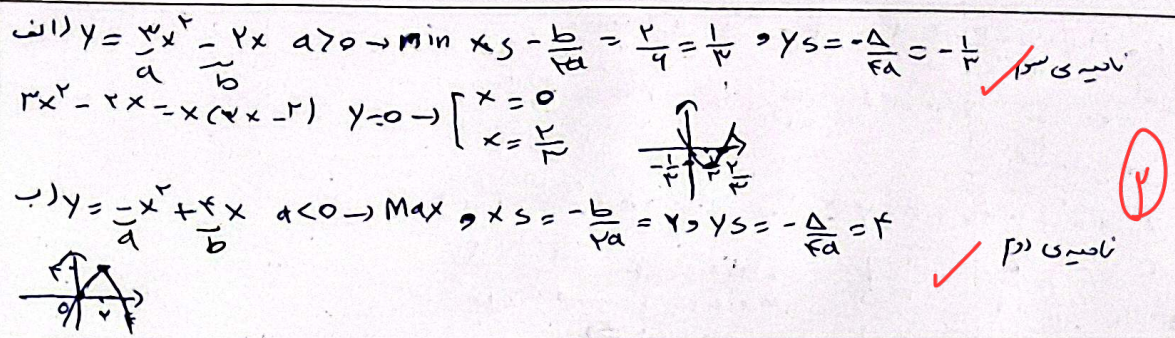 الف) y = ۳x² - ۲x a>۰ → min xs = -b/۲a = ۲/۶ = ۱/۳ و ys = -Δ/۴a = -۱/۳ ناحیه ی سوم
a b
۳x² - ۲x = x(۳x - ۲) y=۰ → [ x = ۰
x = ۲/۳
-۱/۳ ۱/۳ ۲/۳
۲
ب) y = -x² + ۴x a<۰ → Max و xs = -b/۲a = ۲ و ys = -Δ/۴a = ۴
a b
ناحیه ی دوم
۴
۰ ۲ ۴